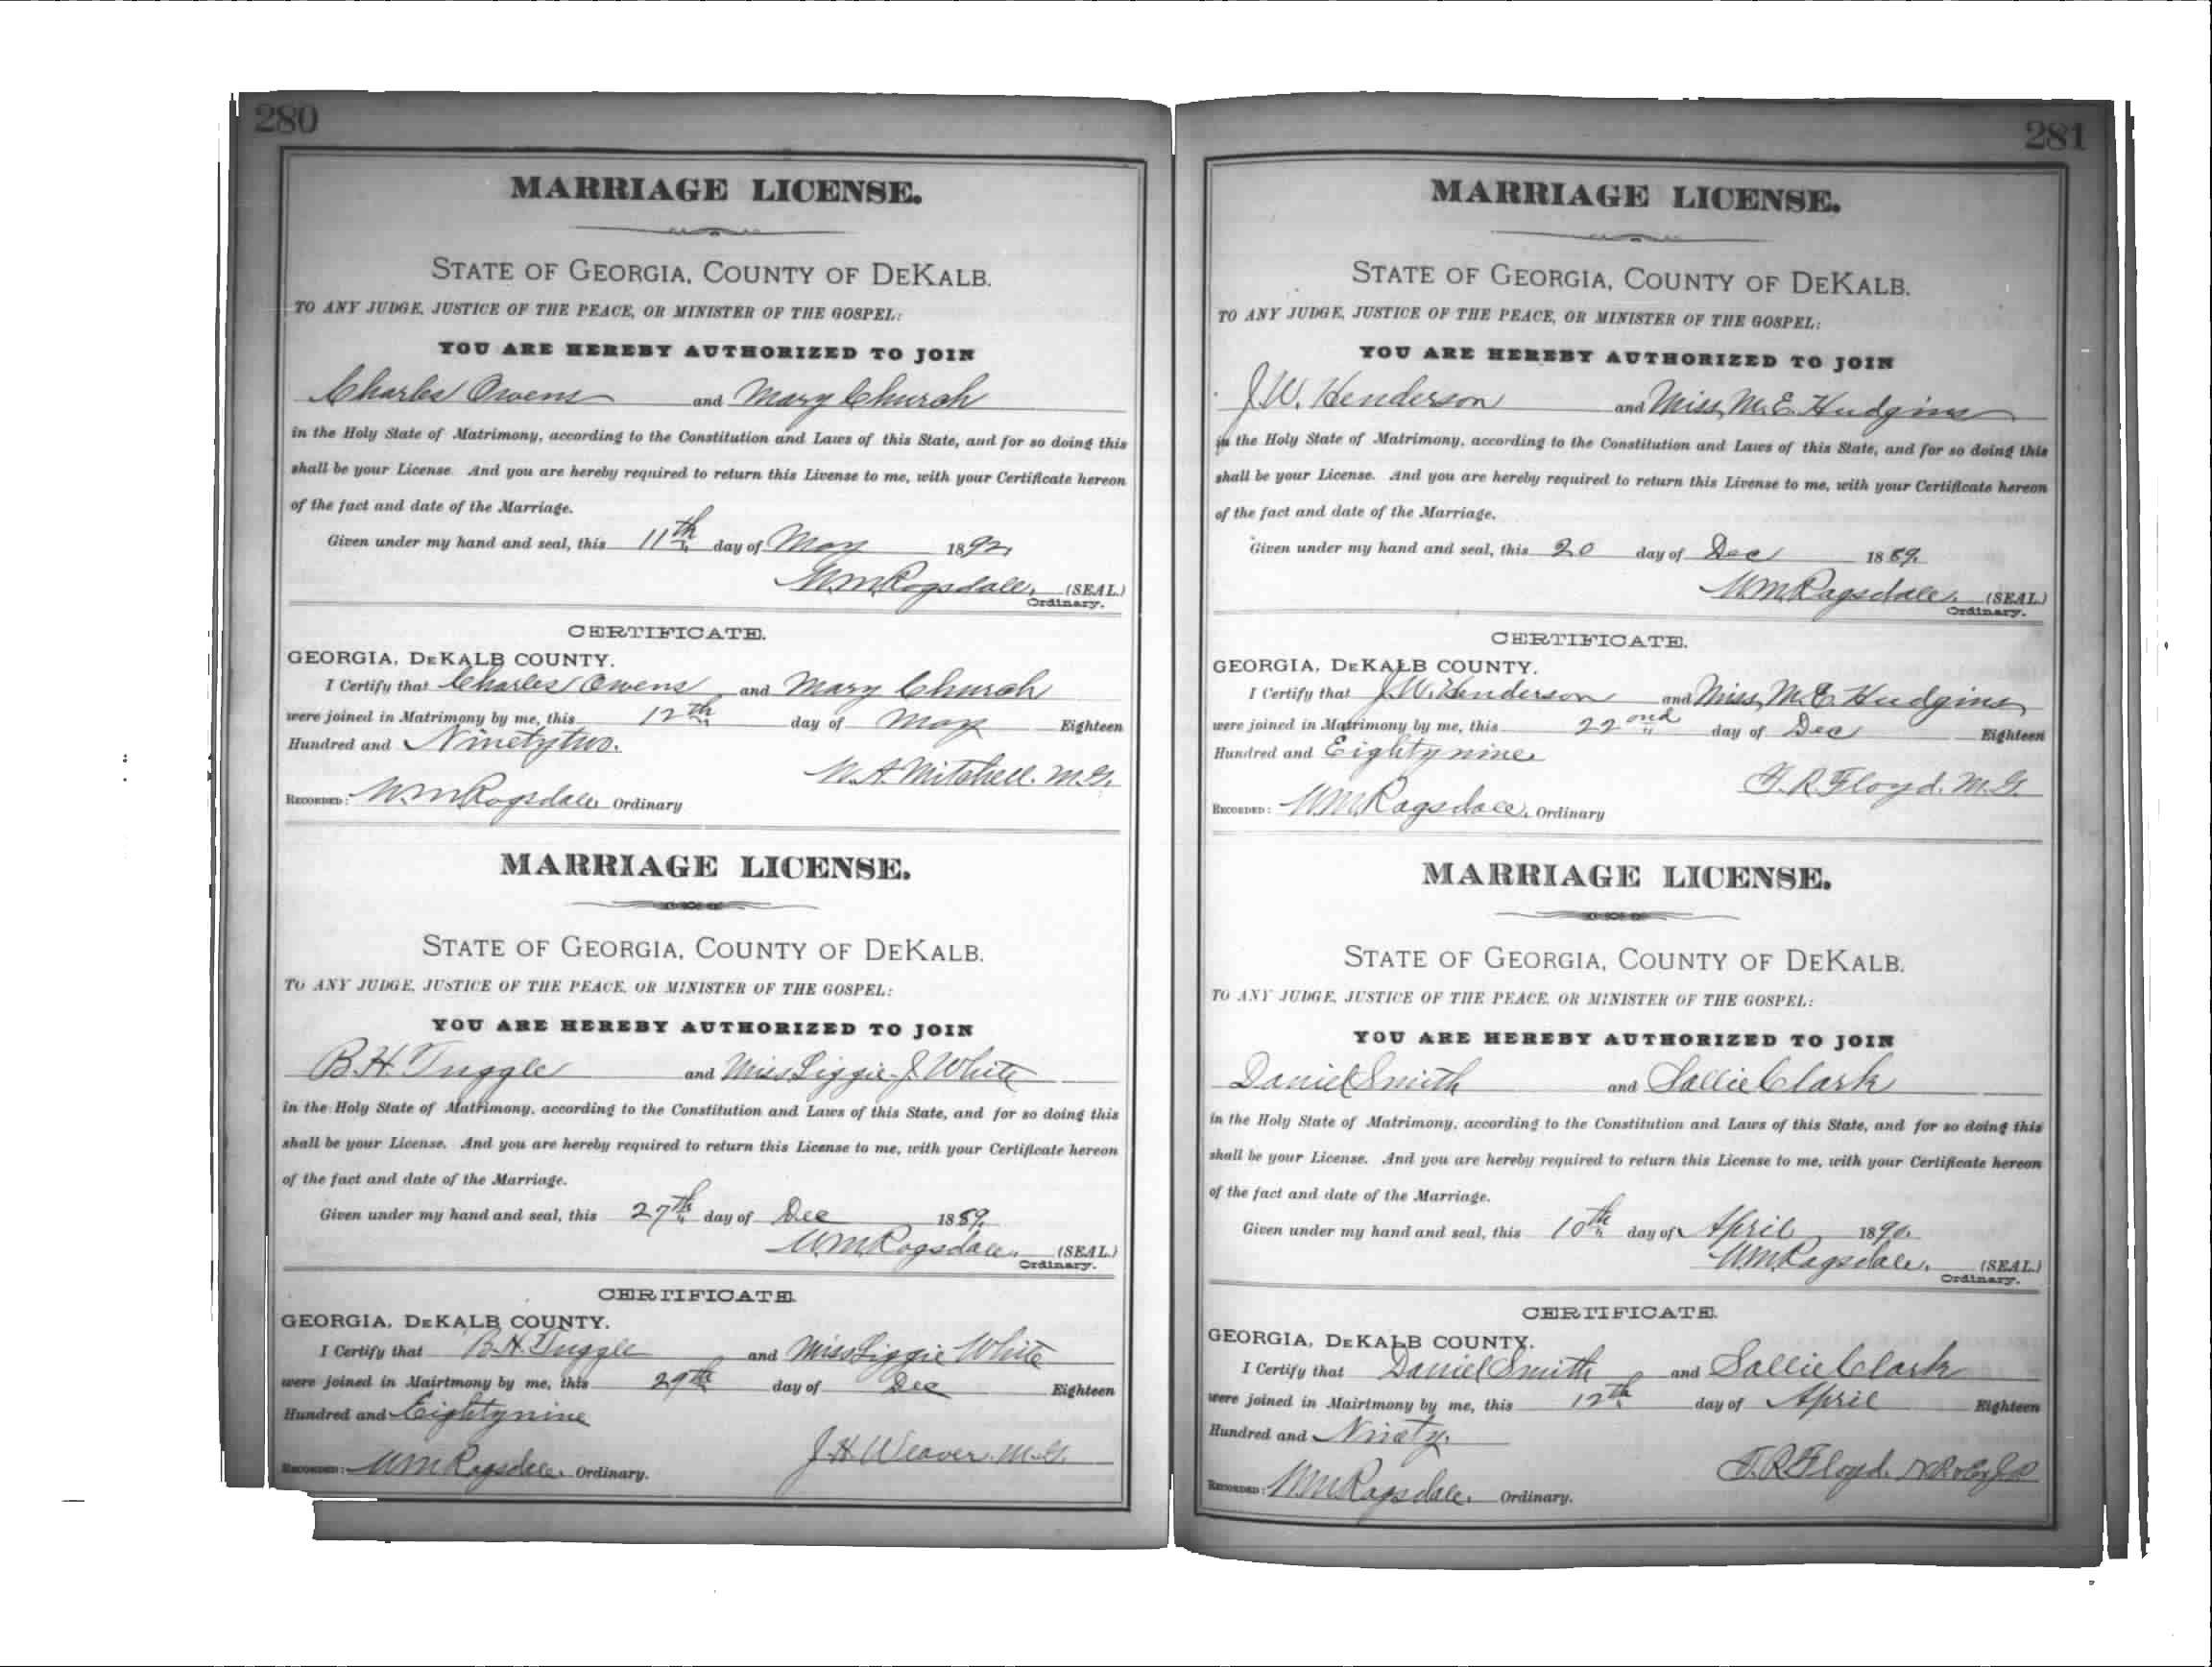 280
MARRIAGE LICENSE.
STATE OF GEORGIA, COUNTY OF DEKALB.
TO ANY JUDGE, JUSTICE OF THE PEACE, OR MINISTER OF THE GOSPEL:
YOU ARE HEREBY AUTHORIZED TO JOIN
Charles Owens and Mary Church
in the Holy State of Matrimony, according to the Constitution and Laws of this State, and for so doing this
shall be your License. And you are hereby required to return this License to me, with your Certificate hereon
of the fact and date of the Marriage.
Given under my hand and seal, this 11th day of May 1892
W.M. Ragsdale, (SEAL.)
Ordinary.
CERTIFICATE.
GEORGIA, DEKALB COUNTY.
I Certify that Charles Owens and Mary Church
were joined in Matrimony by me, this 12th day of May Eighteen
Hundred and Ninetytwo.
W. A. Mitchell. M.G.
RECORDED: W.M. Ragsdale, Ordinary
MARRIAGE LICENSE.
STATE OF GEORGIA, COUNTY OF DEKALB.
TO ANY JUDGE, JUSTICE OF THE PEACE, OR MINISTER OF THE GOSPEL:
YOU ARE HEREBY AUTHORIZED TO JOIN
B.H. Tuggle and Miss Liggie J. White
in the Holy State of Matrimony, according to the Constitution and Laws of this State, and for so doing this
shall be your License. And you are hereby required to return this License to me, with your Certificate hereon
of the fact and date of the Marriage.
Given under my hand and seal, this 27th day of Dec 1889.
W.M. Ragsdale, (SEAL.)
Ordinary.
CERTIFICATE.
GEORGIA, DEKALB COUNTY.
I Certify that B.H. Tuggle and Miss Liggie White
were joined in Mairtmony by me, this 29th day of Dec Eighteen
Hundred and Eightynine
J. H. Weaver. M.G.
RECORDED: W.M. Ragsdale. Ordinary.
281
MARRIAGE LICENSE.
STATE OF GEORGIA, COUNTY OF DEKALB.
TO ANY JUDGE, JUSTICE OF THE PEACE, OR MINISTER OF THE GOSPEL:
YOU ARE HEREBY AUTHORIZED TO JOIN
J.W. Henderson and Miss, M.E. Hudgins
in the Holy State of Matrimony, according to the Constitution and Laws of this State, and for so doing this
shall be your License. And you are hereby required to return this License to me, with your Certificate hereon
of the fact and date of the Marriage.
Given under my hand and seal, this 20 day of Dec 1889.
W.M. Ragsdale, (SEAL.)
Ordinary.
CERTIFICATE.
GEORGIA, DEKALB COUNTY.
I Certify that J.W. Henderson and Miss, M.E. Hudgins
were joined in Matrimony by me, this 22nd day of Dec Eighteen
Hundred and Eightynine
T. R. Floyd. M.G.
RECORDED: W.M. Ragsdale, Ordinary
MARRIAGE LICENSE.
STATE OF GEORGIA, COUNTY OF DEKALB.
TO ANY JUDGE, JUSTICE OF THE PEACE, OR MINISTER OF THE GOSPEL:
YOU ARE HEREBY AUTHORIZED TO JOIN
Daniel Smith and Sallie Clark
in the Holy State of Matrimony, according to the Constitution and Laws of this State, and for so doing this
shall be your License. And you are hereby required to return this License to me, with your Certificate hereon
of the fact and date of the Marriage.
Given under my hand and seal, this 10th day of April 1890.
W.M. Ragsdale. (SEAL.)
Ordinary.
CERTIFICATE.
GEORGIA, DEKALB COUNTY.
I Certify that Daniel Smith and Sallie Clark
were joined in Mairtmony by me, this 12th day of April Eighteen
Hundred and Ninety.
T. R. Floyd.
RECORDED: W.M. Ragsdale. Ordinary.